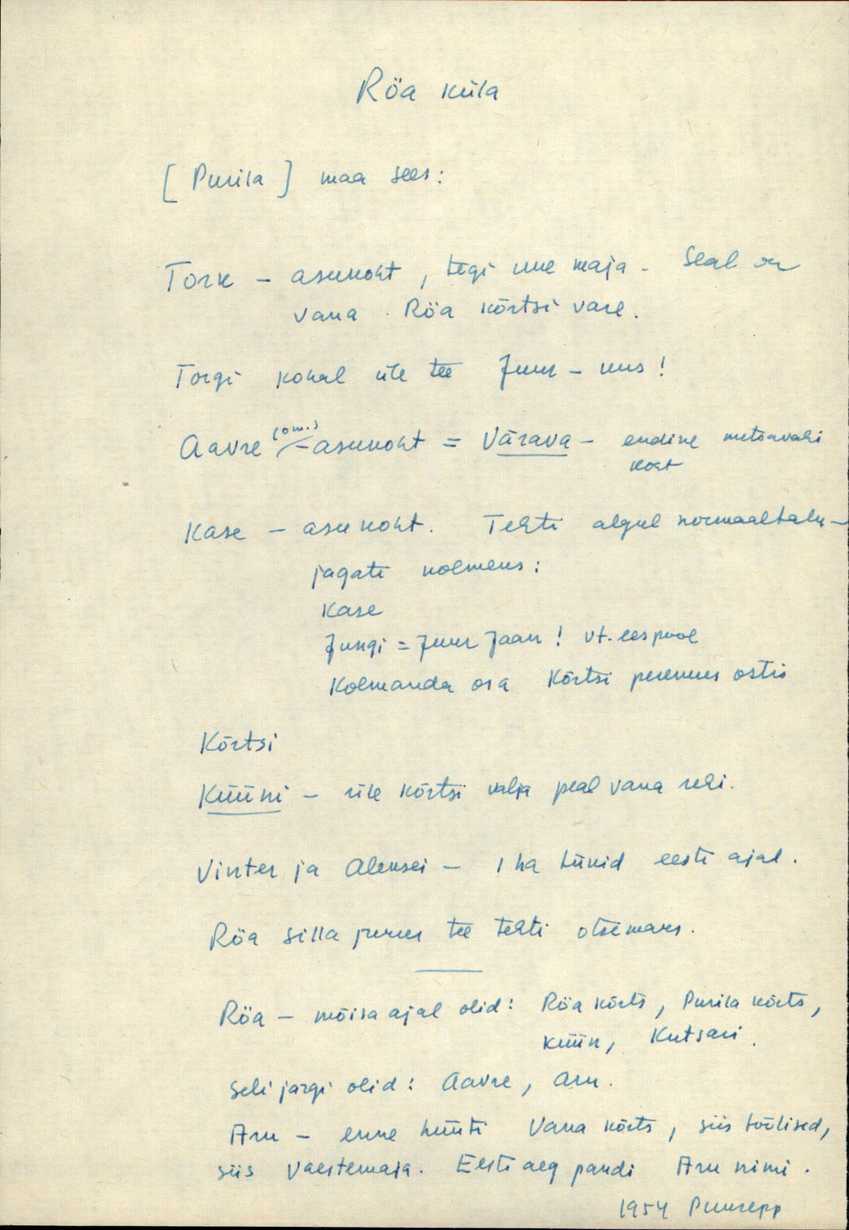 Röa küla
[Purila] maa sees:
Tork – asunoht, tegi uue maja. Seal on
vana Röa kõrtsi vare.
Torgi kohal üle tee Juur – uus!
Aavre (om.) – asunoht = Värava – endine metsavahi
koht
Kase – asunoht. Tehti algul normaaltalu –
jagati kolmeks:
Kase
Jungi = Juur Jaan! vt. eespool
Kolmanda osa Kõrtsi peremees ostis
Kõrtsi
Küüni – üle kõrtsi välja peal vana rehi.
Vinter ja Aleksei – 1 ha tünid eesti ajal.
Röa silla juures tee tehti otsemaks.
Röa – mõisa ajal olid: Röa kõrts, Purila kõrts,
küün, Kutsari.
Seli järgi olid: Aavre, Aru.
Aru – enne hüüti Vana kõrts, siis töölised,
siis vaestemaja. Eesti aeg pandi Aru nimi.
1954 Puusepp